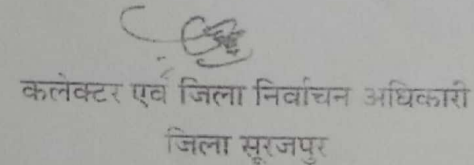 कलेक्टर एवं जिला निर्वाचन अधिकारी
जिला सूरजपुर